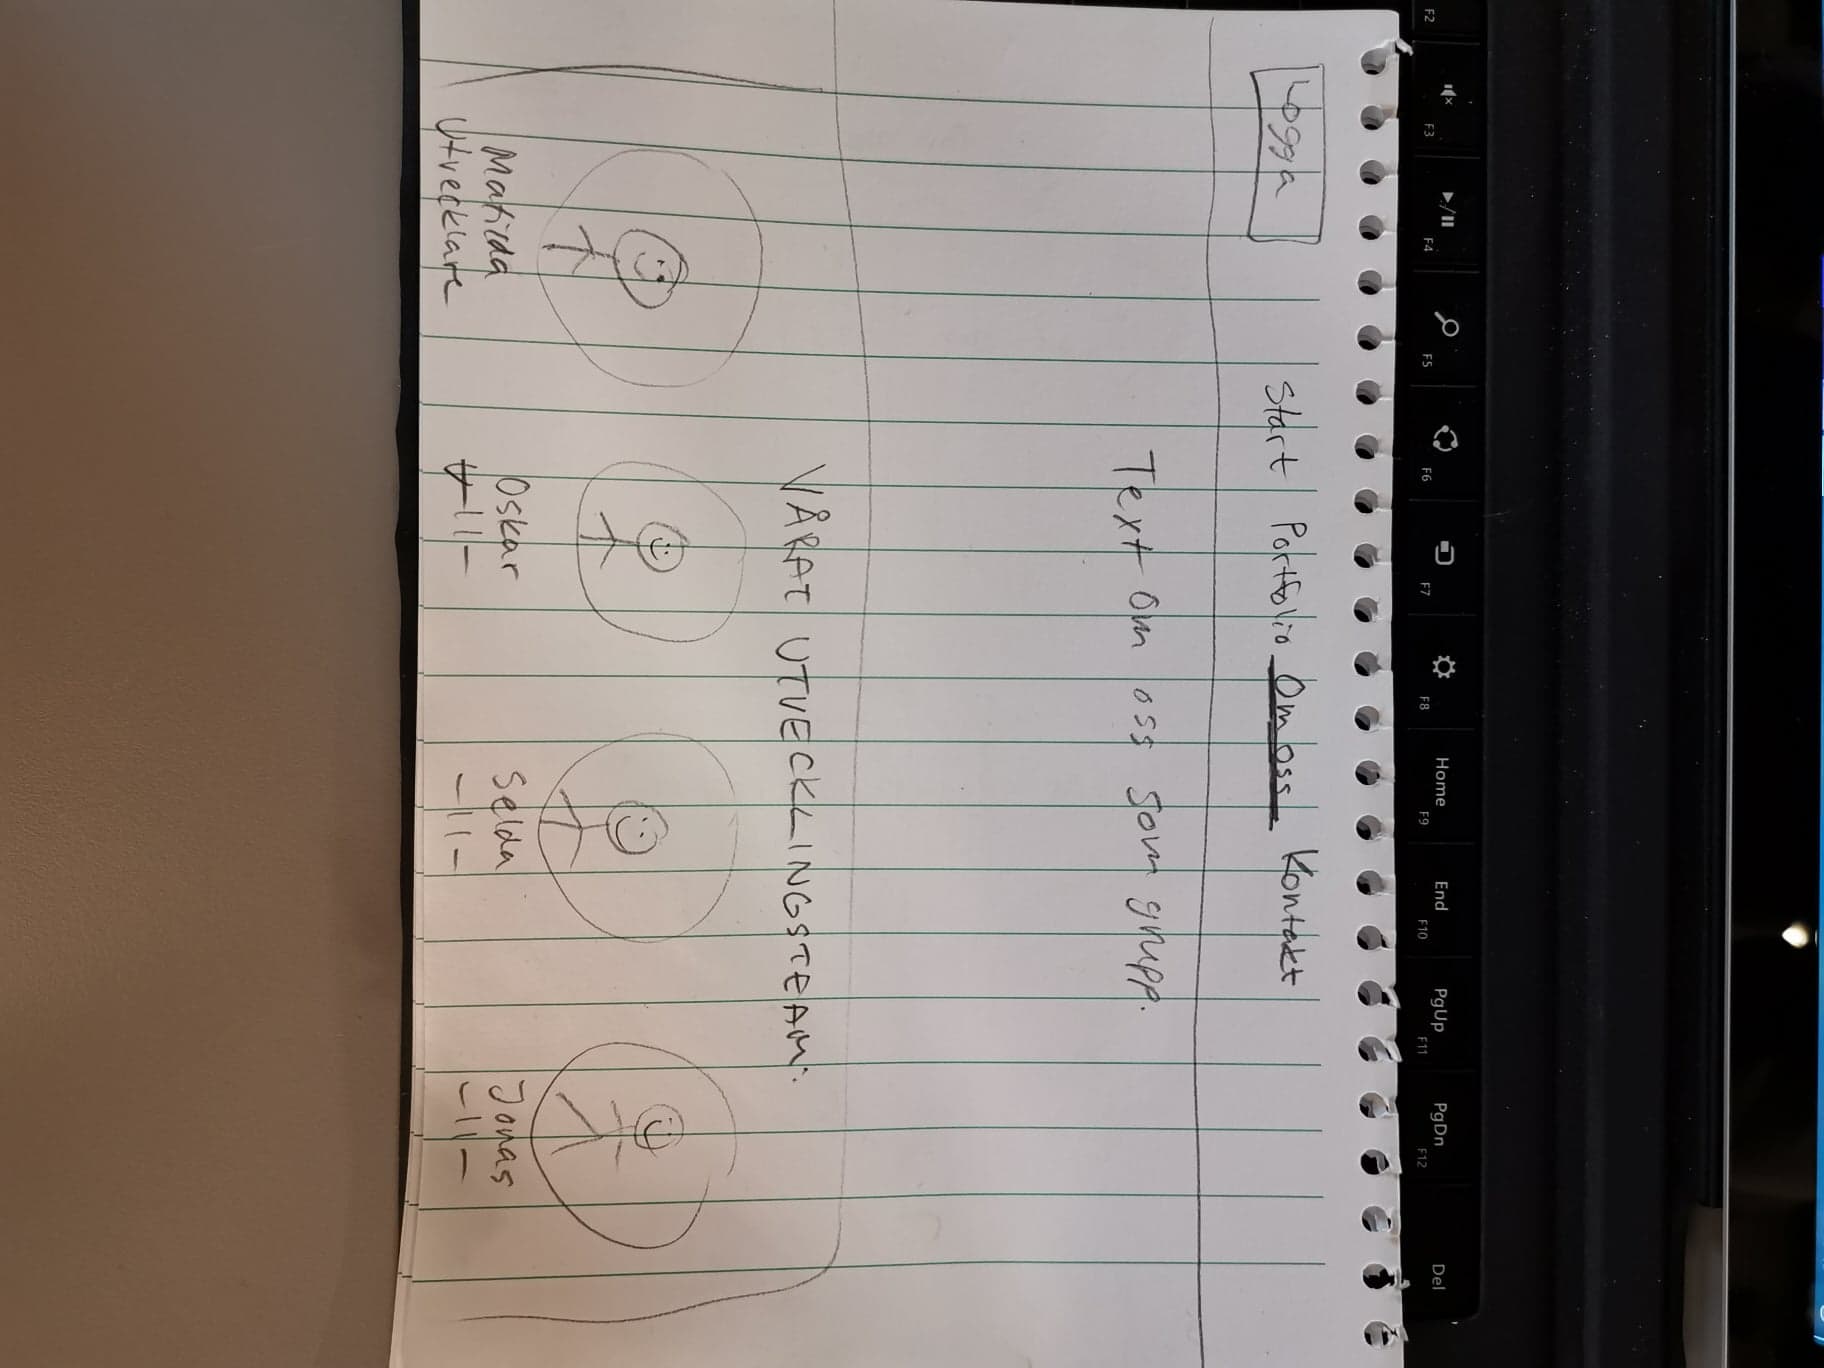 F2 F3 F4 F5 F6 F7 F8 Home F9 End F10 PgUp F11 PgDn F12 Del
Logga Start Portfolio Om oss Kontakt
Text om oss som grupp.
VÅRAT UTVECKLINGSTEAM:
Matilda Oskar Selda Jonas
Utvecklare -11- -11- -11-